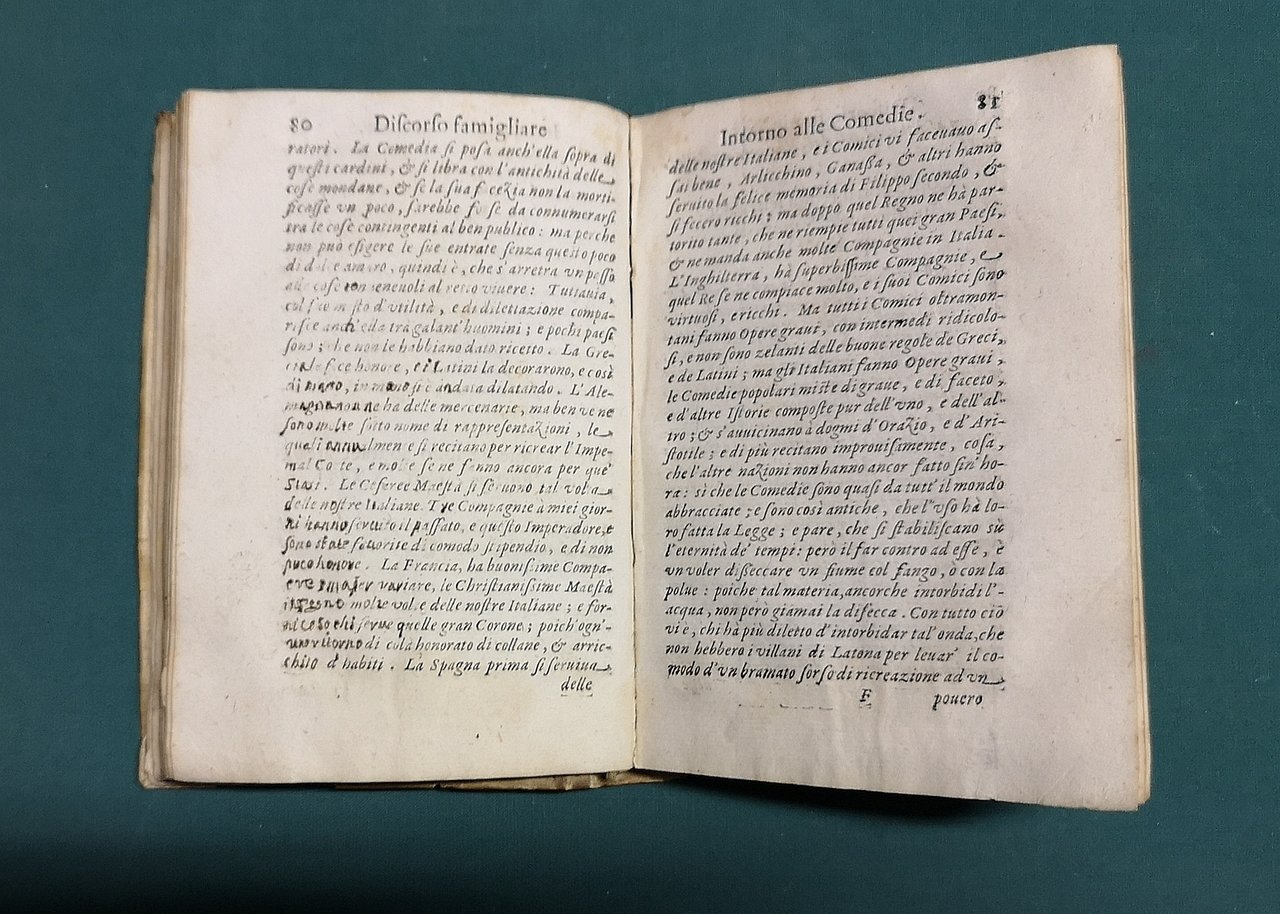 80 Discorso famigliare
ratori. La Comedia si posa anch'ella sopra di
questi cardini, & si libra con l'antichità delle
cose mondane, & se la sua f cezia non la morti-
ficasse vn poco, sarebbe fo se da connumerarsi
tra le cose contingenti al ben publico: ma perche
non può esigere le sue entrate senza questo poco
di dol e amaro, quindi è, che s'arretra vn passo
alle cose conueneuoli al retto viuere: Tuttauia,
col suo misto d'vtilità, e di dilettazione compa-
risce anch'ella tra galant'huomini; e pochi paesi
sono; che non le habbiano dato ricetto. La Gre-
cia le fece honore, e i Latini la decorarono, e così
di mano, in mano si è andata dilatando. L'Ale-
magna non ne ha delle mercenarie, ma ben ve ne
sono molte sotto nome di rappresentazioni, le
quali annualmente si recitano per ricrear l'Impe-
rial Co te, e molte se ne fanno ancora per que'
Stati. Le Cesaree Maestà si seruono tal volta
delle nostre Italiane. Tre Compagnie à miei gior-
ni hanno seruito il passato, e questo Imperadore, e
sono state fauorite di comodo stipendio, e di non
puco honore. La Francia, ha buonissime Compa-
e per variare, le Christianissime Maestà
molte volte delle nostre Italiane; e for-
chi serue quelle gran Corone; poich'ogn'-
vn ritorna di colà honorato di collane, & arric-
chito d'habiti. La Spagna prima si seruiua
delle
Intorno alle Comedie. 81
delle nostre Italiane, e i Comici vi faceuauo as-
sai bene, Arlicchino, Ganassa, & altri hanno
seruito la felice memoria di Filippo secondo, &
si fecero ricchi; ma doppo quel Regno ne hà par-
torito tante, che ne riempie tutti quei gran Paesi,
& ne manda anche molte Compagnie in Italia.
L'Inghilterra, hà superbissime Compagnie, e
quel Re se ne compiace molto, e i suoi Comici sono
virtuosi, e ricchi. Ma tutti i Comici oltramon-
tani fanno Opere graui, con intermedi ridicolo-
si, e non sono zelanti delle buone regole de Greci,
e de Latini; ma gli Italiani fanno Opere graui,
le Comedie popolari miste di graue, e di faceto,
e d'altre Istorie composte pur dell'vno, e dell'al-
tro; & s'auuicinano à dogmi d'Orazio, e d'Ari-
stotile; e di più recitano improuisamente, cosa,
che l'altre nazioni non hanno ancor fatto fin' ho-
ra: sì che le Comedie sono quasi da tutt' il mondo
abbracciate; e sono così antiche, che l'vso hà lo-
ro fatta la Legge; e pare, che si stabiliscano sù
l'eternità de' tempi: però il far contro ad esse, è
vn voler disseccare vn fiume col fango, ò con la
polue: poiche tal materia, ancorche intorbidi l'-
acqua, non però giamai la disecca. Con tutto ciò
vi è, chi hà più diletto d'intorbidar tal'onda, che
non hebbero i villani di Latona per leuar' il co-
modo d'vn bramato sorso di ricreazione ad vn
F pouero